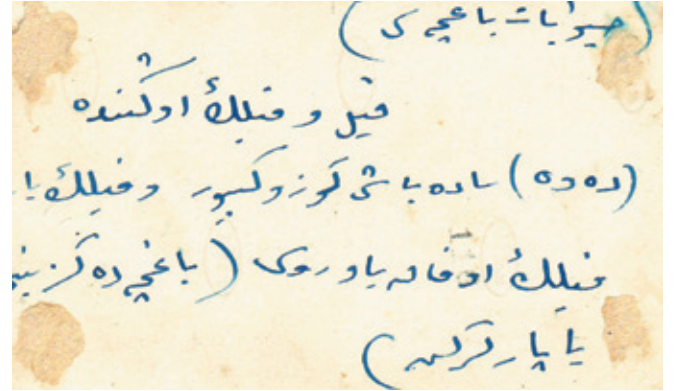 (حیوانات باغچه سی)
فیل و فیلك اوڭنده
(ده ده) ساده باشی كوزوكییور و فیلك
فیلك اوفاق یاوروسی (باغچه ده
یاپاركن)